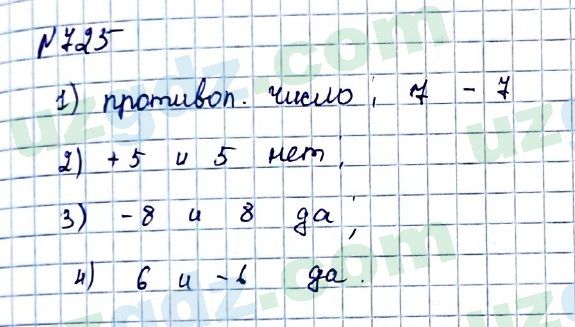 №725
1) противоп. число; 7 -7
2) +5 и 5 нет;
3) -8 и 8 да;
4) 6 и -6 да.
uzgdz.com